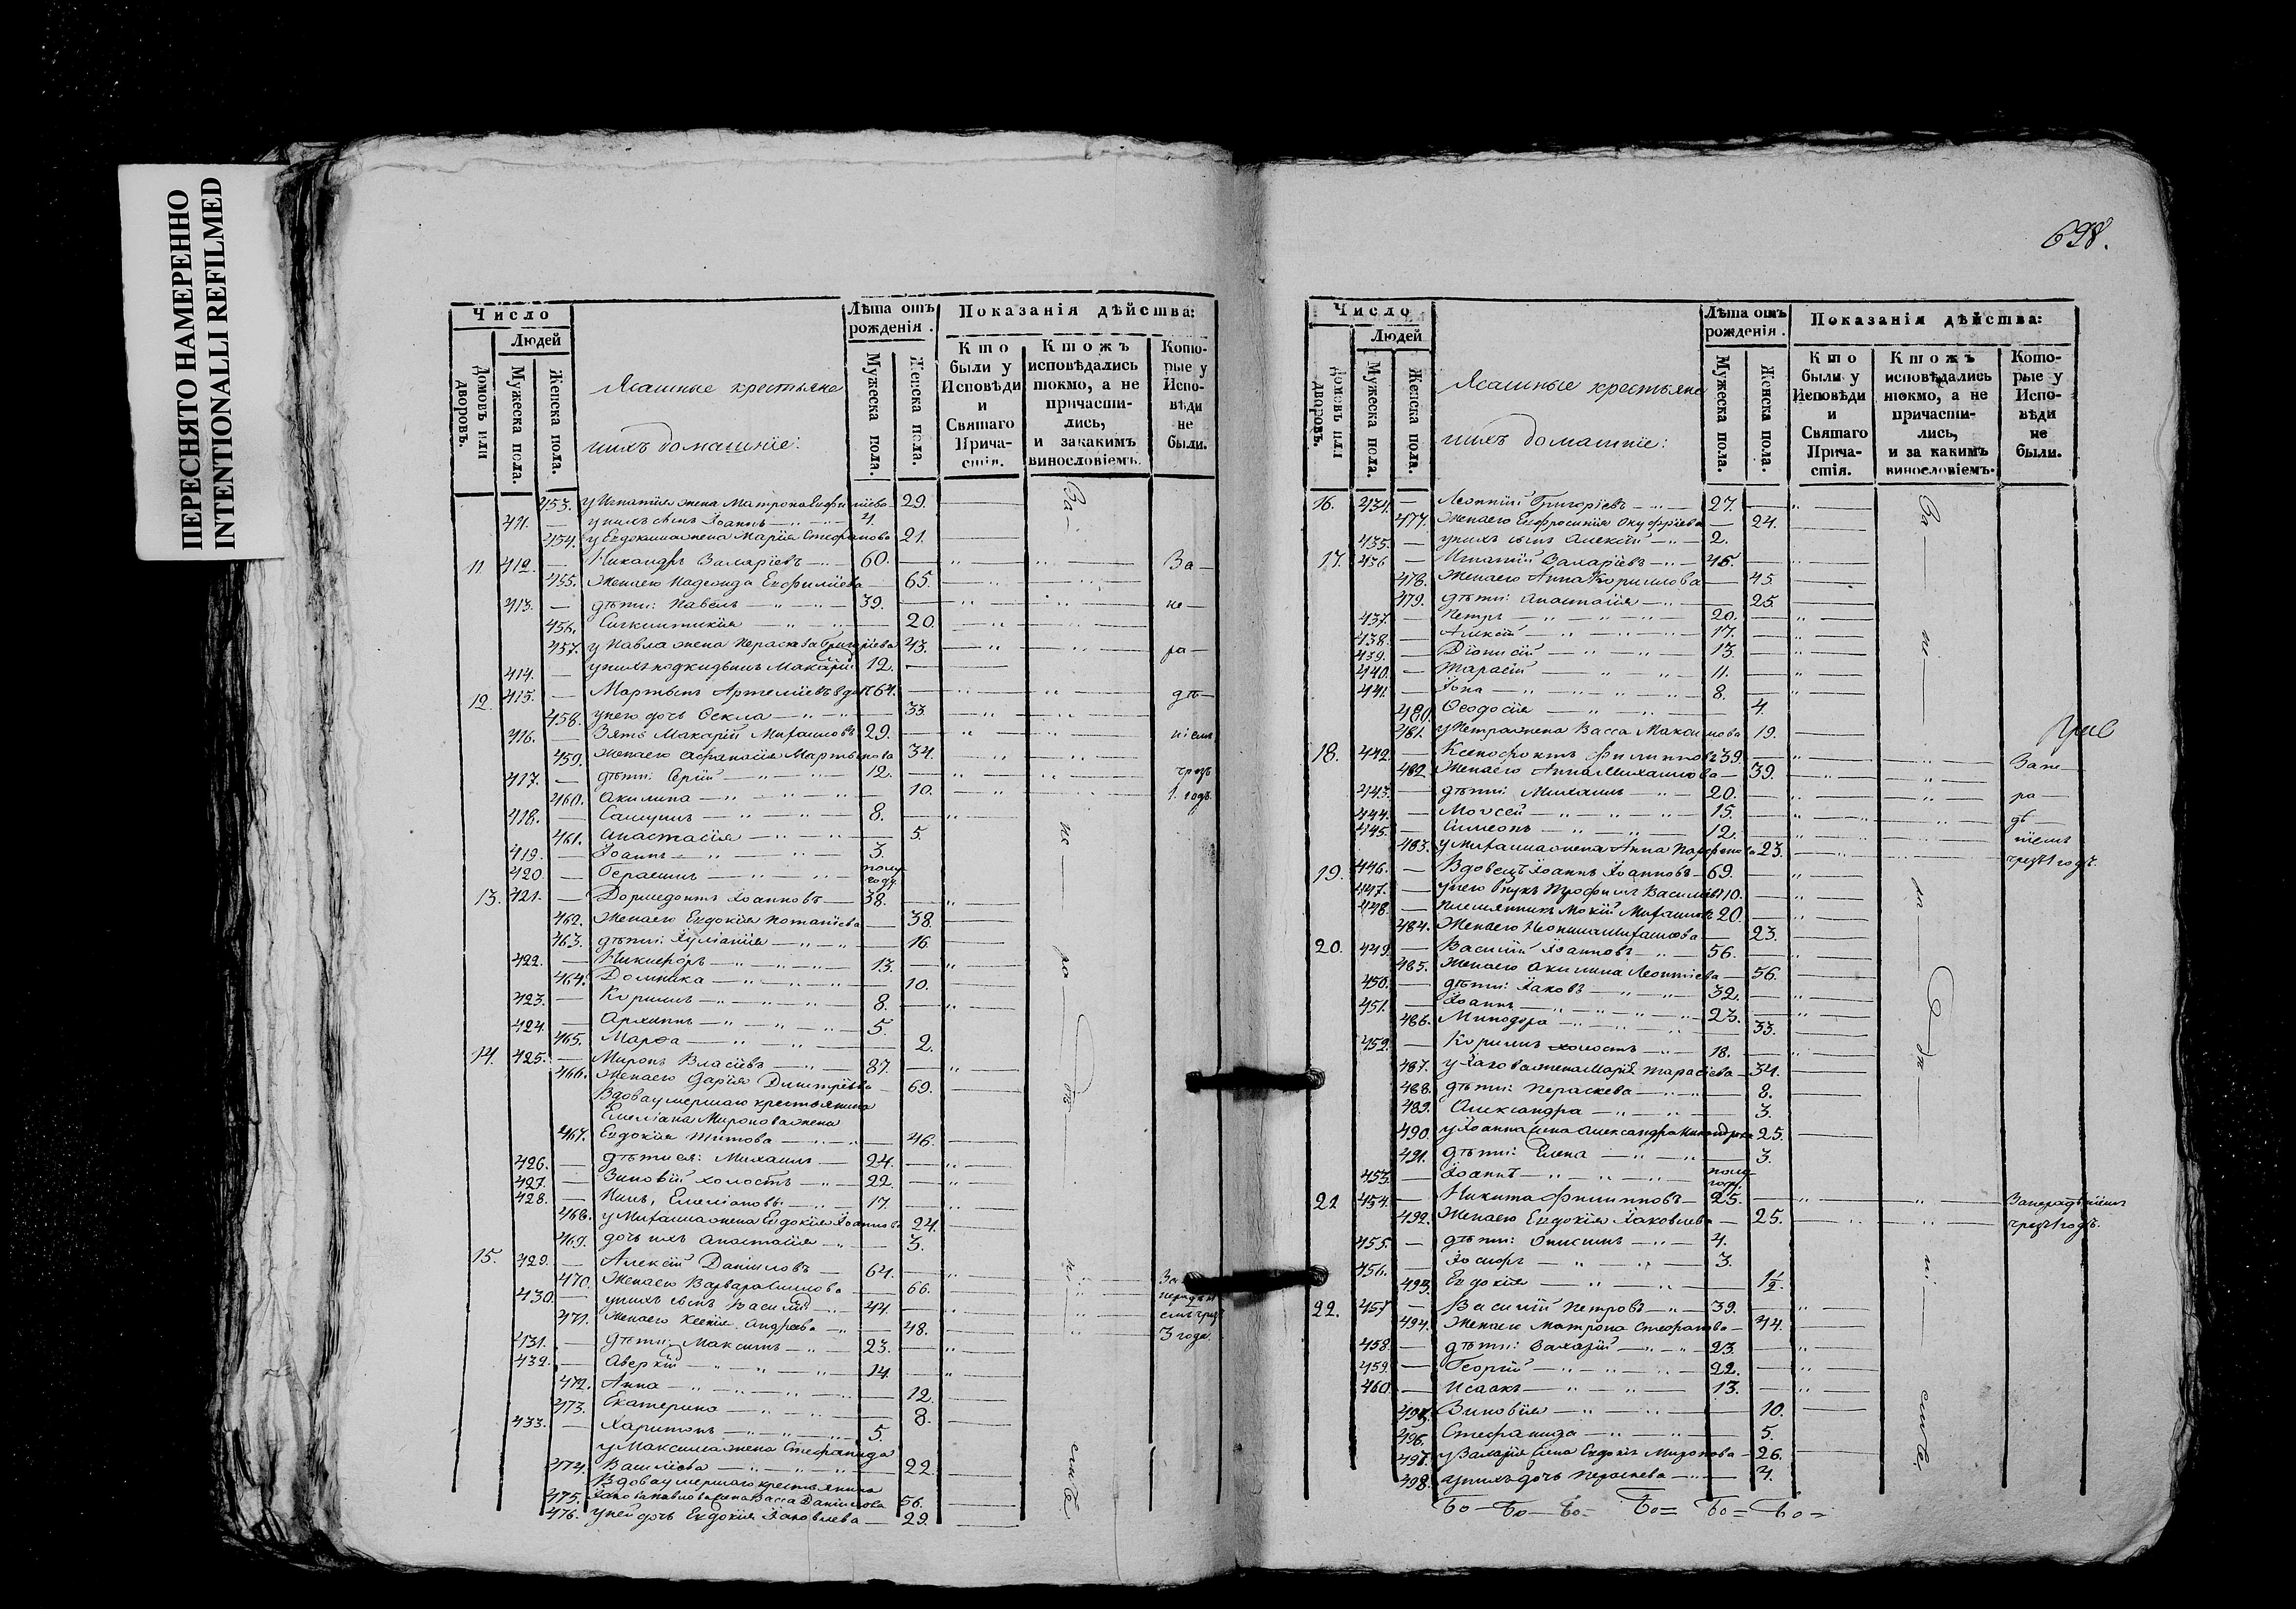 ПЕРЕСНЯТО НАМЕРЕННО
INTENTIONALLI REFILMED
Число
Людей
Домовъ или дворовъ.
Мужеска пола.
Женска пола.
Ясашные крестьяне
ихъ домашніе:
Лѣта отъ рожденія.
Мужеска пола.
Женска пола.
Показанія дѣйства:
Кто были у Исповѣди и Святаго Прича-стія.
Ктожъ исповѣдались токмо, а не причасти-лись, и закакимъ винословіемъ.
Кото-рые у Испо-вѣди не были.
453. у Игнатія жена Матрона 29.
411. — у нихъ сынъ Іоаннъ — 4.
454. у Евдокима жена Марія Стефанова 21.
11 412. — Никандръ — 60. За—
455. Жена его Надежда — 65.
413. — дѣти: Павелъ — 39. не—
456. Сигклитикія — 20.
457. у Павла жена Параскева Григоріева 43. ра—
414. — у нихъ подкидышъ Макарій 12.
12. 415. — Мартынъ Артеміевъ вдов 64. дѣ—
458. у него дочь Ѳекла — 33.
416. Зять Макарій Михаиловъ 29. ніемъ
459. Жена его Мартынова 34.
417. — дѣти: Сергій — 12. чрезъ
460. Акилина — 10. 1. годъ.
418. — Сампсонъ — 8.
461. Анастасія — 5.
419. — Іоаннъ — 3.
420. — Герасимъ — полу году
13. 421. — Дормедонтъ Іоанновъ — 38.
462. Жена его Евдокія Потапіева — 38.
463. дѣти: Іуліанія — 16.
422. — Никифоръ — 13.
464. Домника — 10.
423. — Кириллъ — 8.
424. — Архиппъ — 5.
465. Марѳа — 2.
14. 425. — Миронъ Власіевъ — 87.
466. Жена его Дарія Димитріева — 69.
Вдова умершаго крестьянина
Емеліана Миронова жена
467. Евдокія Титова — 46.
426. — дѣти ея: Михаилъ — 24.
427. — Зиновій холостъ — 22.
428. — Нилъ, Емеліановы. 17.
468. у Михаила жена Евдокія Іоаннова 24.
469. дочь ихъ Анастасія — 3.
15. 429. — Алексій Даніиловъ — 64.
470. Жена его Варвара — 66.
430. — у нихъ сынъ Василій — 44.
471. Жена его Ксенія Андреева — 48.
431. — дѣти: Максимъ — 23. 3 года.
432. — Аверкій — 14.
472. Анна — 12.
473. Екатерина — 8.
433. — Харитонъ — 5.
у Максима жена Стефанида
474. Васіліева — 22.
Вдова умершаго крестьянина
475. Іакова Павлова жена Васса Даніилова 56.
476. у ней дочь Евдокія Іаковлева — 29.
За — не — ра — дѣ — ні — емъ
698.
Число
Людей
Домовъ или дворовъ.
Мужеска пола.
Женска пола.
Ясашные крестьяне
ихъ домашніе:
Лѣта отъ рожденія.
Мужеска пола.
Женска пола.
Показанія дѣйства:
Кто были у Исповѣди и Святаго Прича-стія.
Ктожъ исповѣдались токмо, а не причасти-лись, и за какимъ винословіемъ.
Кото-рые у Испо-вѣди не были.
16. 434. — Леонтій Григоріевъ — 27.
477. Жена его Евфросинія Онуфріева — 24.
435. — у нихъ сынъ Алексій — 2.
17. 436 — Игнатій — 46.
478. Жена его Анна Кириллова — 45.
479. дѣти: Анастасія — 25.
437. — Петръ — 20.
438. — Алексій — 17.
439. — Діонисій — 13.
440. — Тарасій — 11.
441. — Іона — 8.
480. Ѳеодосія — 4.
481. у Петра жена Васса Максимова 19.
18. 442. — Ксенофонтъ Филипповъ 39.
482. Жена его Анна Михаилова — 39. Зане
443. — дѣти: Михаилъ — 20. ра
444. — Моѵсей — 15. дѣ
445. — Симеонъ — 12. ніемъ
483. у Михаила жена Анна 23. чрезъ 1 годъ.
19. 446. — Вдовецъ Іоаннъ Іоанновъ — 69.
447. — у него внукъ Трофимъ Василіевъ 10.
448. — племянникъ Мокій Михаиловъ 20.
484. Жена его Михаилова — 23.
20. 449. — Василій Іоанновъ — 56.
485. Жена его Акилина Леонтіева — 56.
450. — дѣти: Іаковъ — 32.
451. — Іоаннъ — 23.
486. Минодора — 33.
452. — Кириллъ холостъ — 18.
487. у Іакова жена Марія Тарасіева — 34.
488. дѣти: Параскева — 8.
489. Александра — 3.
490. у Іоанна жена Александра Никандрова 25.
491. дѣти: Елена — 3.
453. — Іоаннъ — полу году.
21 454. — Никита Филипповъ — 25. Занерадѣніемъ
492. Жена его Евдокія Іаковлева — 25. чрезъ 1 годъ.
455. — дѣти: Онисимъ — 4.
456. — Іосифъ — 3.
493. Евдокія — 1½.
22. 457 — Василій Петровъ — 39.
494. Жена его Матрона Стефанова — 44.
458. — дѣти: Захарій — 23.
459. — Георгій — 22.
460. — Исаакъ — 13.
495. Зиновія — 10.
496. Стефанида — 5.
497. у Захарія жена Евдокія Миронова — 26.
498. у нихъ дочь Параскева — 4.
За — не — ра — дѣ — ні — емъ